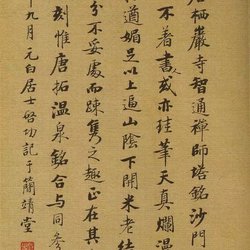 栖巖寺智通禪師塔銘沙門
不著書人或亦珪筆天真爛漫
遒媚足以上逼山陰下開米老結
分不妥處而踈雋之趣正在其
刻惟唐拓温泉銘合与同參
九月元白居士啓功記于簡靖堂